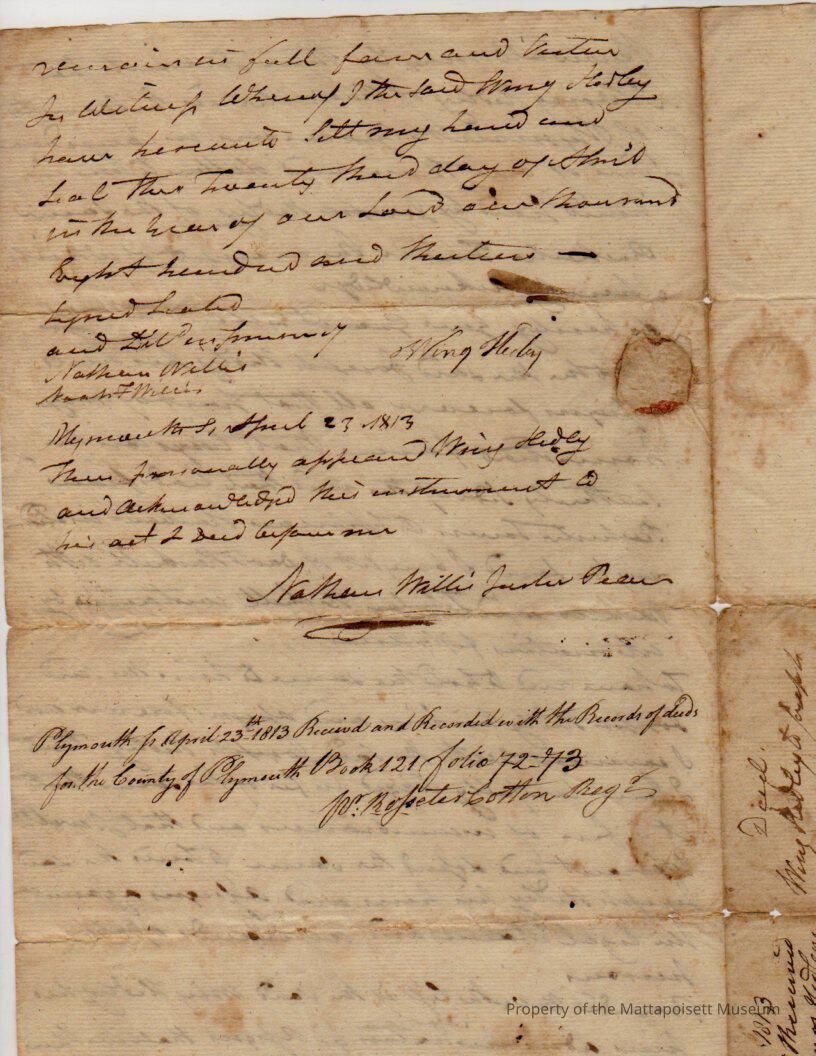 remain in full force and Virtue
In Witness Whereof I the said Wing Hedley
have hereunto Sett my hand and
Seal this Twenty third day of April
in the year of our Lord one thousand
Eight hundred and thirteen —
Signed Sealed
and Deld in presence of
Nathan Willis
Wing Hedley
Noah F Willis
Plymouth Ss April 23 1813
Then personally appeared Wing Hedley
and acknowledged this instrument to
his act & Deed before me
Nathan Willis Justice Peace
Plymouth ss April 23th 1813 Receivd and Recorded with the Records of deeds
for the County of Plymouth Book 121 folio 72 & 73
pr. Rosseter Cotton Regr
Deed.
Wing Hedley to Joseph
1813
Received
Property of the Mattapoisett Museum